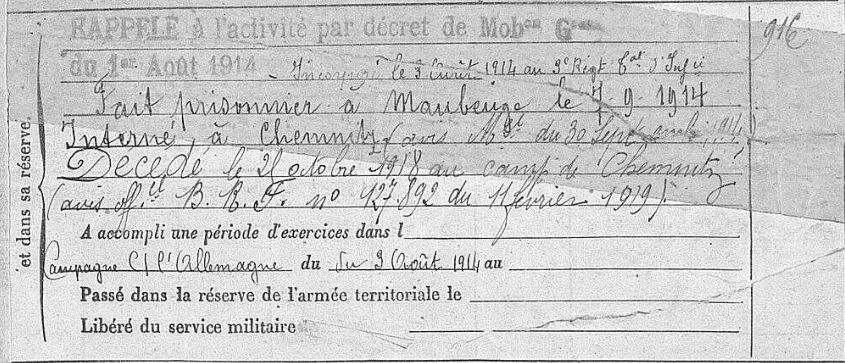 RAPPELÉ à l'activité par décret de Mobon Gale
du 1er Août 1914 - Incorporé le 3 Août 1914 au 3e Régt d'Infie
916
Fait prisonnier à Maubeuge le 7 9 1914
Interné à Chemnitz (avis du 30 Sept 1914)
Décédé le 21 octobre 1918 au camp de Chemnitz
(avis off.el B. R. F. no 127.892 du 11 février 1919).
et dans sa réserve.
A accompli une période d'exercices dans l
Campagne C/ l'Allemagne du du 3 Août 1914 au
Passé dans la réserve de l'armée territoriale le
Libéré du service militaire